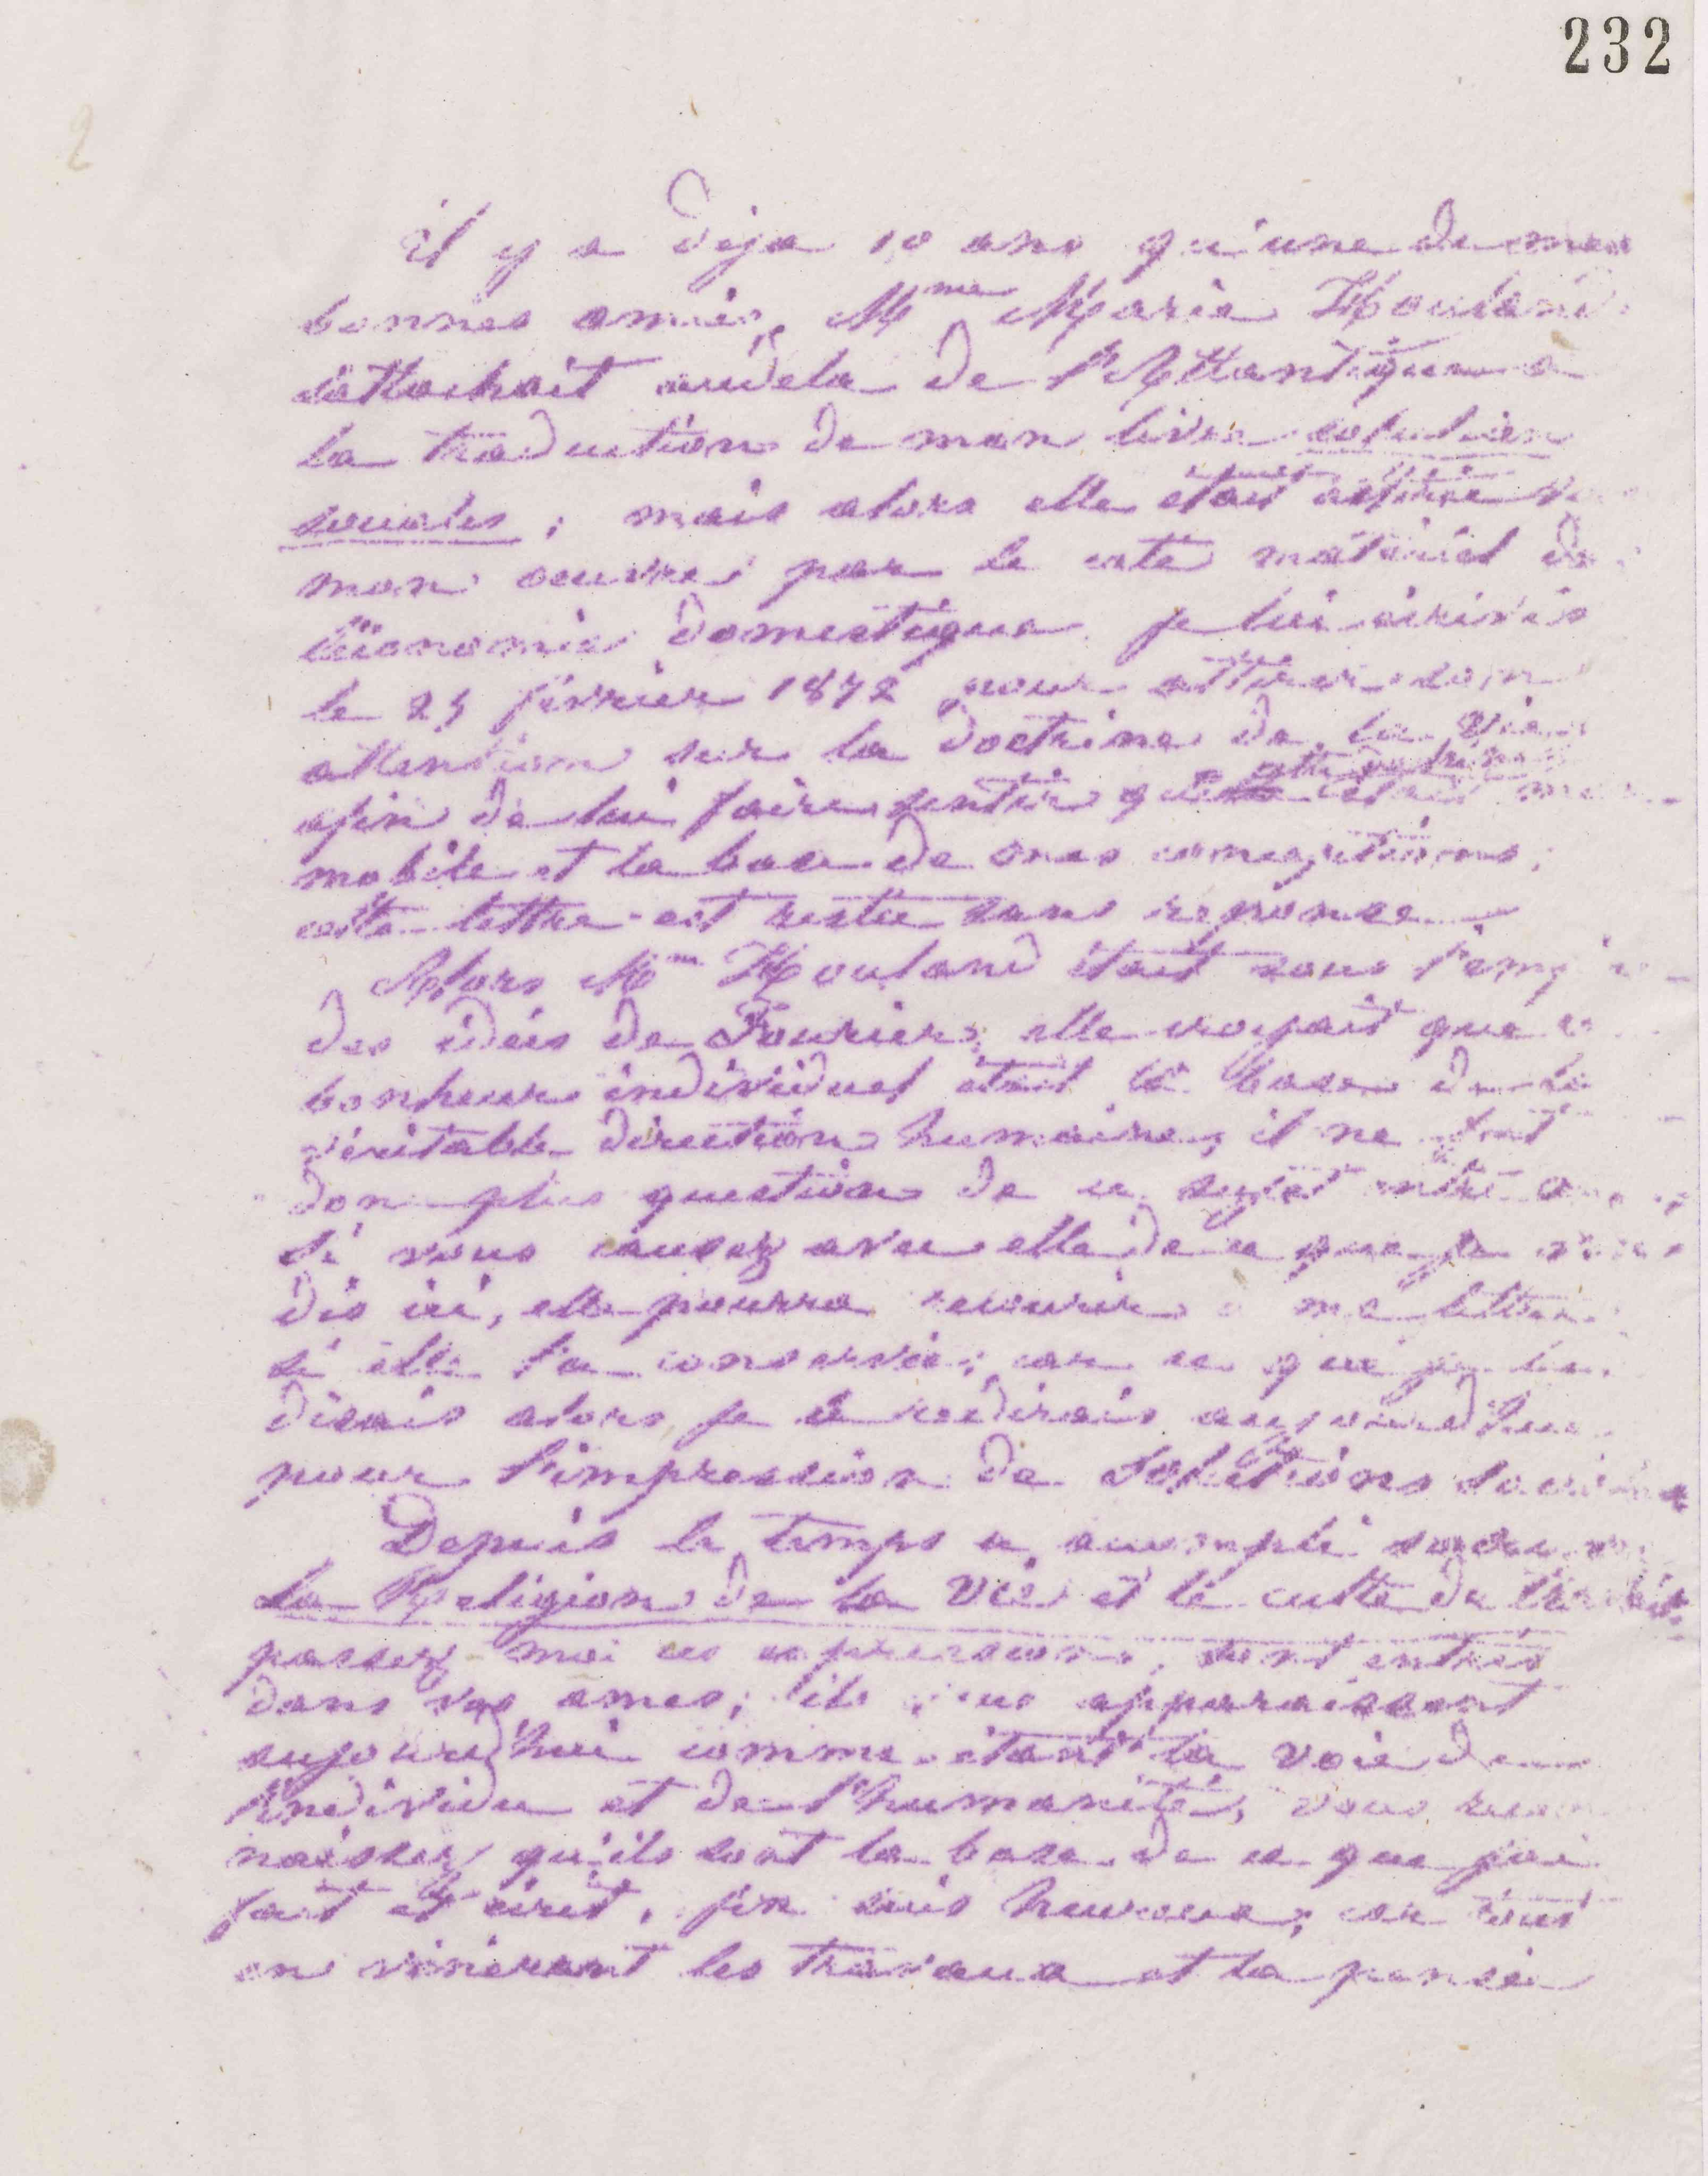 232
2
il y a deja 10 ans qu'une de mes
bonnes amies, Mme Marie Howland
s'attachait audela de l'Atlantique a
la traduction de mon livre solution
sociales ; mais alors elle était attirée
mon oeuvre par le coté matériel de
l'économie domestique je lui écrivis
le 25 février 1872 pour attirer son
attention sur la doctrine de la Vie
afin de lui faire sentir que cette doctrine était
mobile et la base de mes conceptions,
cette lettre est restée sans réponse
Alors Mme Howland était sous l'empire
des idées de Fourier, elle croyait que le
bonheur individuel était la base de la
véritable direction humaine, il ne fut
donc plus question de ce sujet entre
si vous causez avec elle de ce que je vous
dis ici, elle pourra recourir à ma lettre
si elle l'a conservée ; car ce que je lui
disais alors je le redirais aujourd'hui
pour l'impression de Solutions sociales
Depuis le temps a accompli
La Religion de la Vie et le culte du travail
passez moi ces expressions, sont entrés
dans vos ames ; ils vous apparaissent
aujourd'hui comme étant la voie de
l'individu et de l'humanité, vous recon
naissez qu'ils sont la base de ce que j'ai
fait et écrit, j'en suis heureux ; car tous
en vénérant les travaux et la pensée